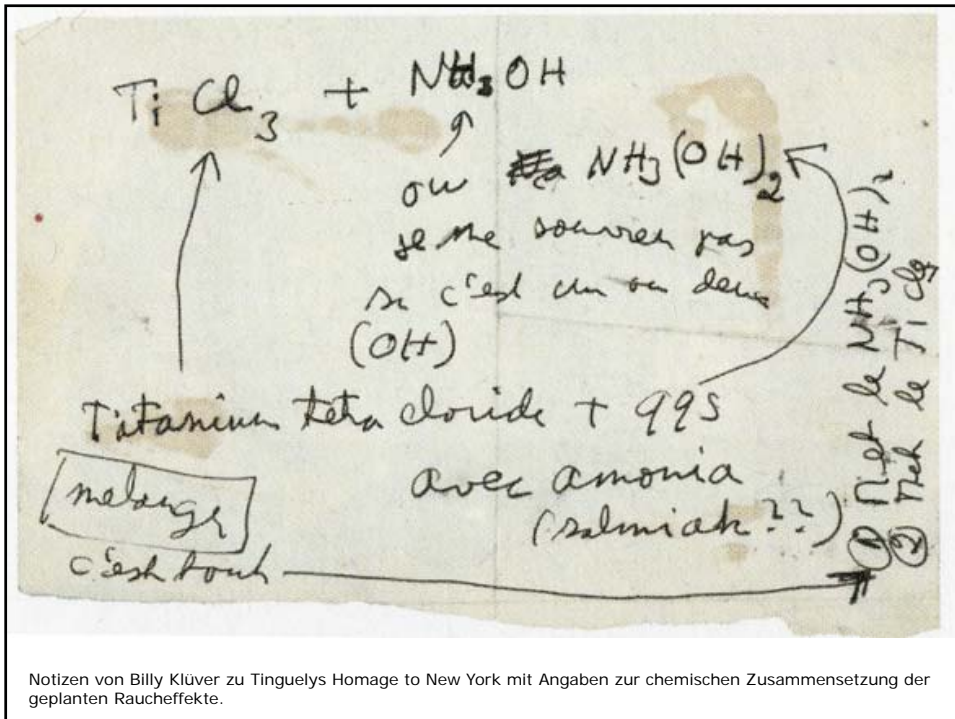 TiCl3 + NH3OH
ou NH3(OH)2
je me souvien pas
si c'est un ou deux
(OH)
Titanium tetra cloride + qqs
avec amonia
(salmiak??)
melanger
c'est tout
① Met le NH3(OH)2
② Met le TiCl3
Notizen von Billy Klüver zu Tinguelys Homage to New York mit Angaben zur chemischen Zusammensetzung der
geplanten Raucheffekte.